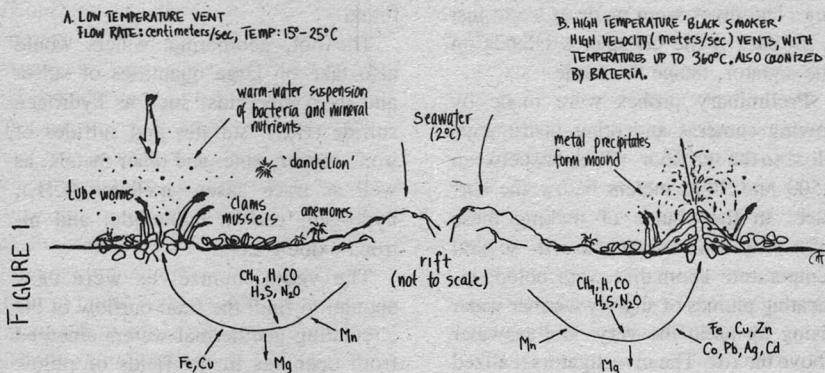 A. LOW TEMPERATURE VENT
FLOW RATE: centimeters/sec, TEMP: 15°-25°C
B. HIGH TEMPERATURE 'BLACK SMOKER'
HIGH VELOCITY (meters/sec) VENTS, WITH
TEMPERATURES UP TO 360°C, ALSO COLONIZED
BY BACTERIA.
warm-water suspension
of bacteria and mineral
nutrients
dandelion
tube worms
clams
mussels
anemones
Seawater
(2°C)
metal precipitates
form mound
rift
(not to scale)
CH4, H, CO
H2S, N2O
Fe, Cu
Mg
Mn
CH4, H, CO
H2S, N2O
Mn
Mg
Fe, Cu, Zn
Co, Pb, Ag, Cd
FIGURE 1